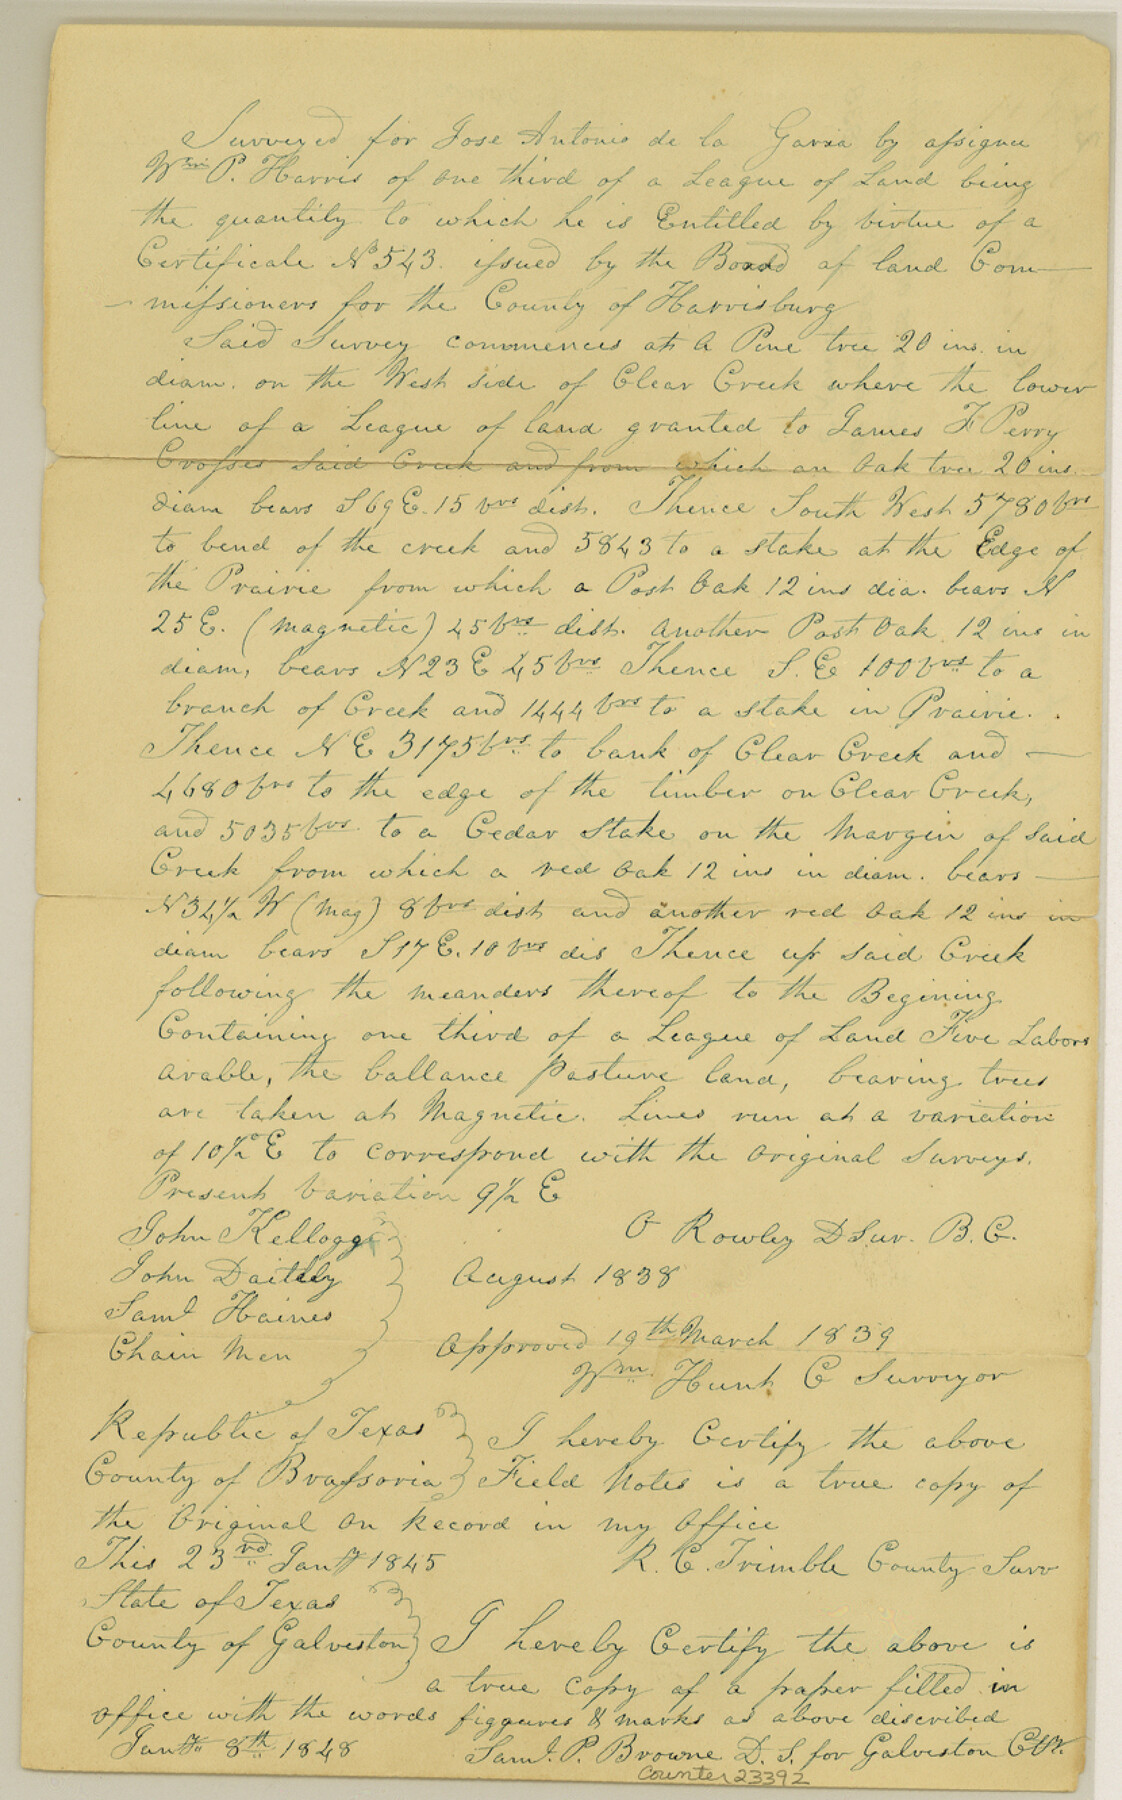 Surveyed for Jose Antonio de la Garza by assignee
Wm P. Harris of one third of a League of Land being
the quantity to which he is Entitled by virtue of a
Certificate No 543. issued by the Board of land Com—
—missioners for the County of Harrisburg
Said Survey commences at a Pine tree 20 ins. in
diam. on the West side of Clear Creek where the lower
line of a League of land granted to James F Perry
Crosses said Creek and from which an Oak tree 20 ins.
diam bears S 69 E. 15 vrs dist. Thence South West 5780 vrs
to bend of the creek and 5843 to a stake at the Edge of
the Prairie from which a Post Oak 12 ins dia. bears N
25 E. (magnetic) 45 vrs dist. another Post Oak 12 ins in
diam, bears N 23 E 45 vrs Thence S. E 100 vrs to a
branch of Creek and 1444 vrs to a stake in Prairie.
Thence N E 3175 vrs to bank of Clear Creek and —
4680 vrs to the edge of the timber on Clear Creek,
and 5035 vrs to a Cedar Stake on the Margin of Said
Creek from which a red Oak 12 ins in diam. bears —
N 34½ W (mag) 8 vrs dist and another red Oak 12 ins in
diam bears S 17 E. 10 vrs dis Thence up said Creek
following the meanders thereof to the Begining
Containing one third of a League of Land Five Labors
arable, the ballance Pasture land, bearing trees
are taken at Magnetic. Lines run at a variation
of 10½° E to correspond with the original surveys.
Present variation 9½ E
John Kellogg
O Rowley D Sur. B. C.
John Daitely
August 1838
Saml Haines
Chain Men
Approved 19th March 1839
Wm. Hunt C Surveyor
Republic of Texas
County of Brassoria
I hereby Certify the above
Field Notes is a true copy of
the Original on Record in my office
This 23rd Jany 1845
R. C. Trimble County Surv
State of Texas
County of Galveston
I hereby Certify the above is
a true copy of a paper filled in
office with the words figgures & marks as above discribed
Jany 8th 1848
Saml. P. Browne D. S. for Galveston Cty.
Counter 23392